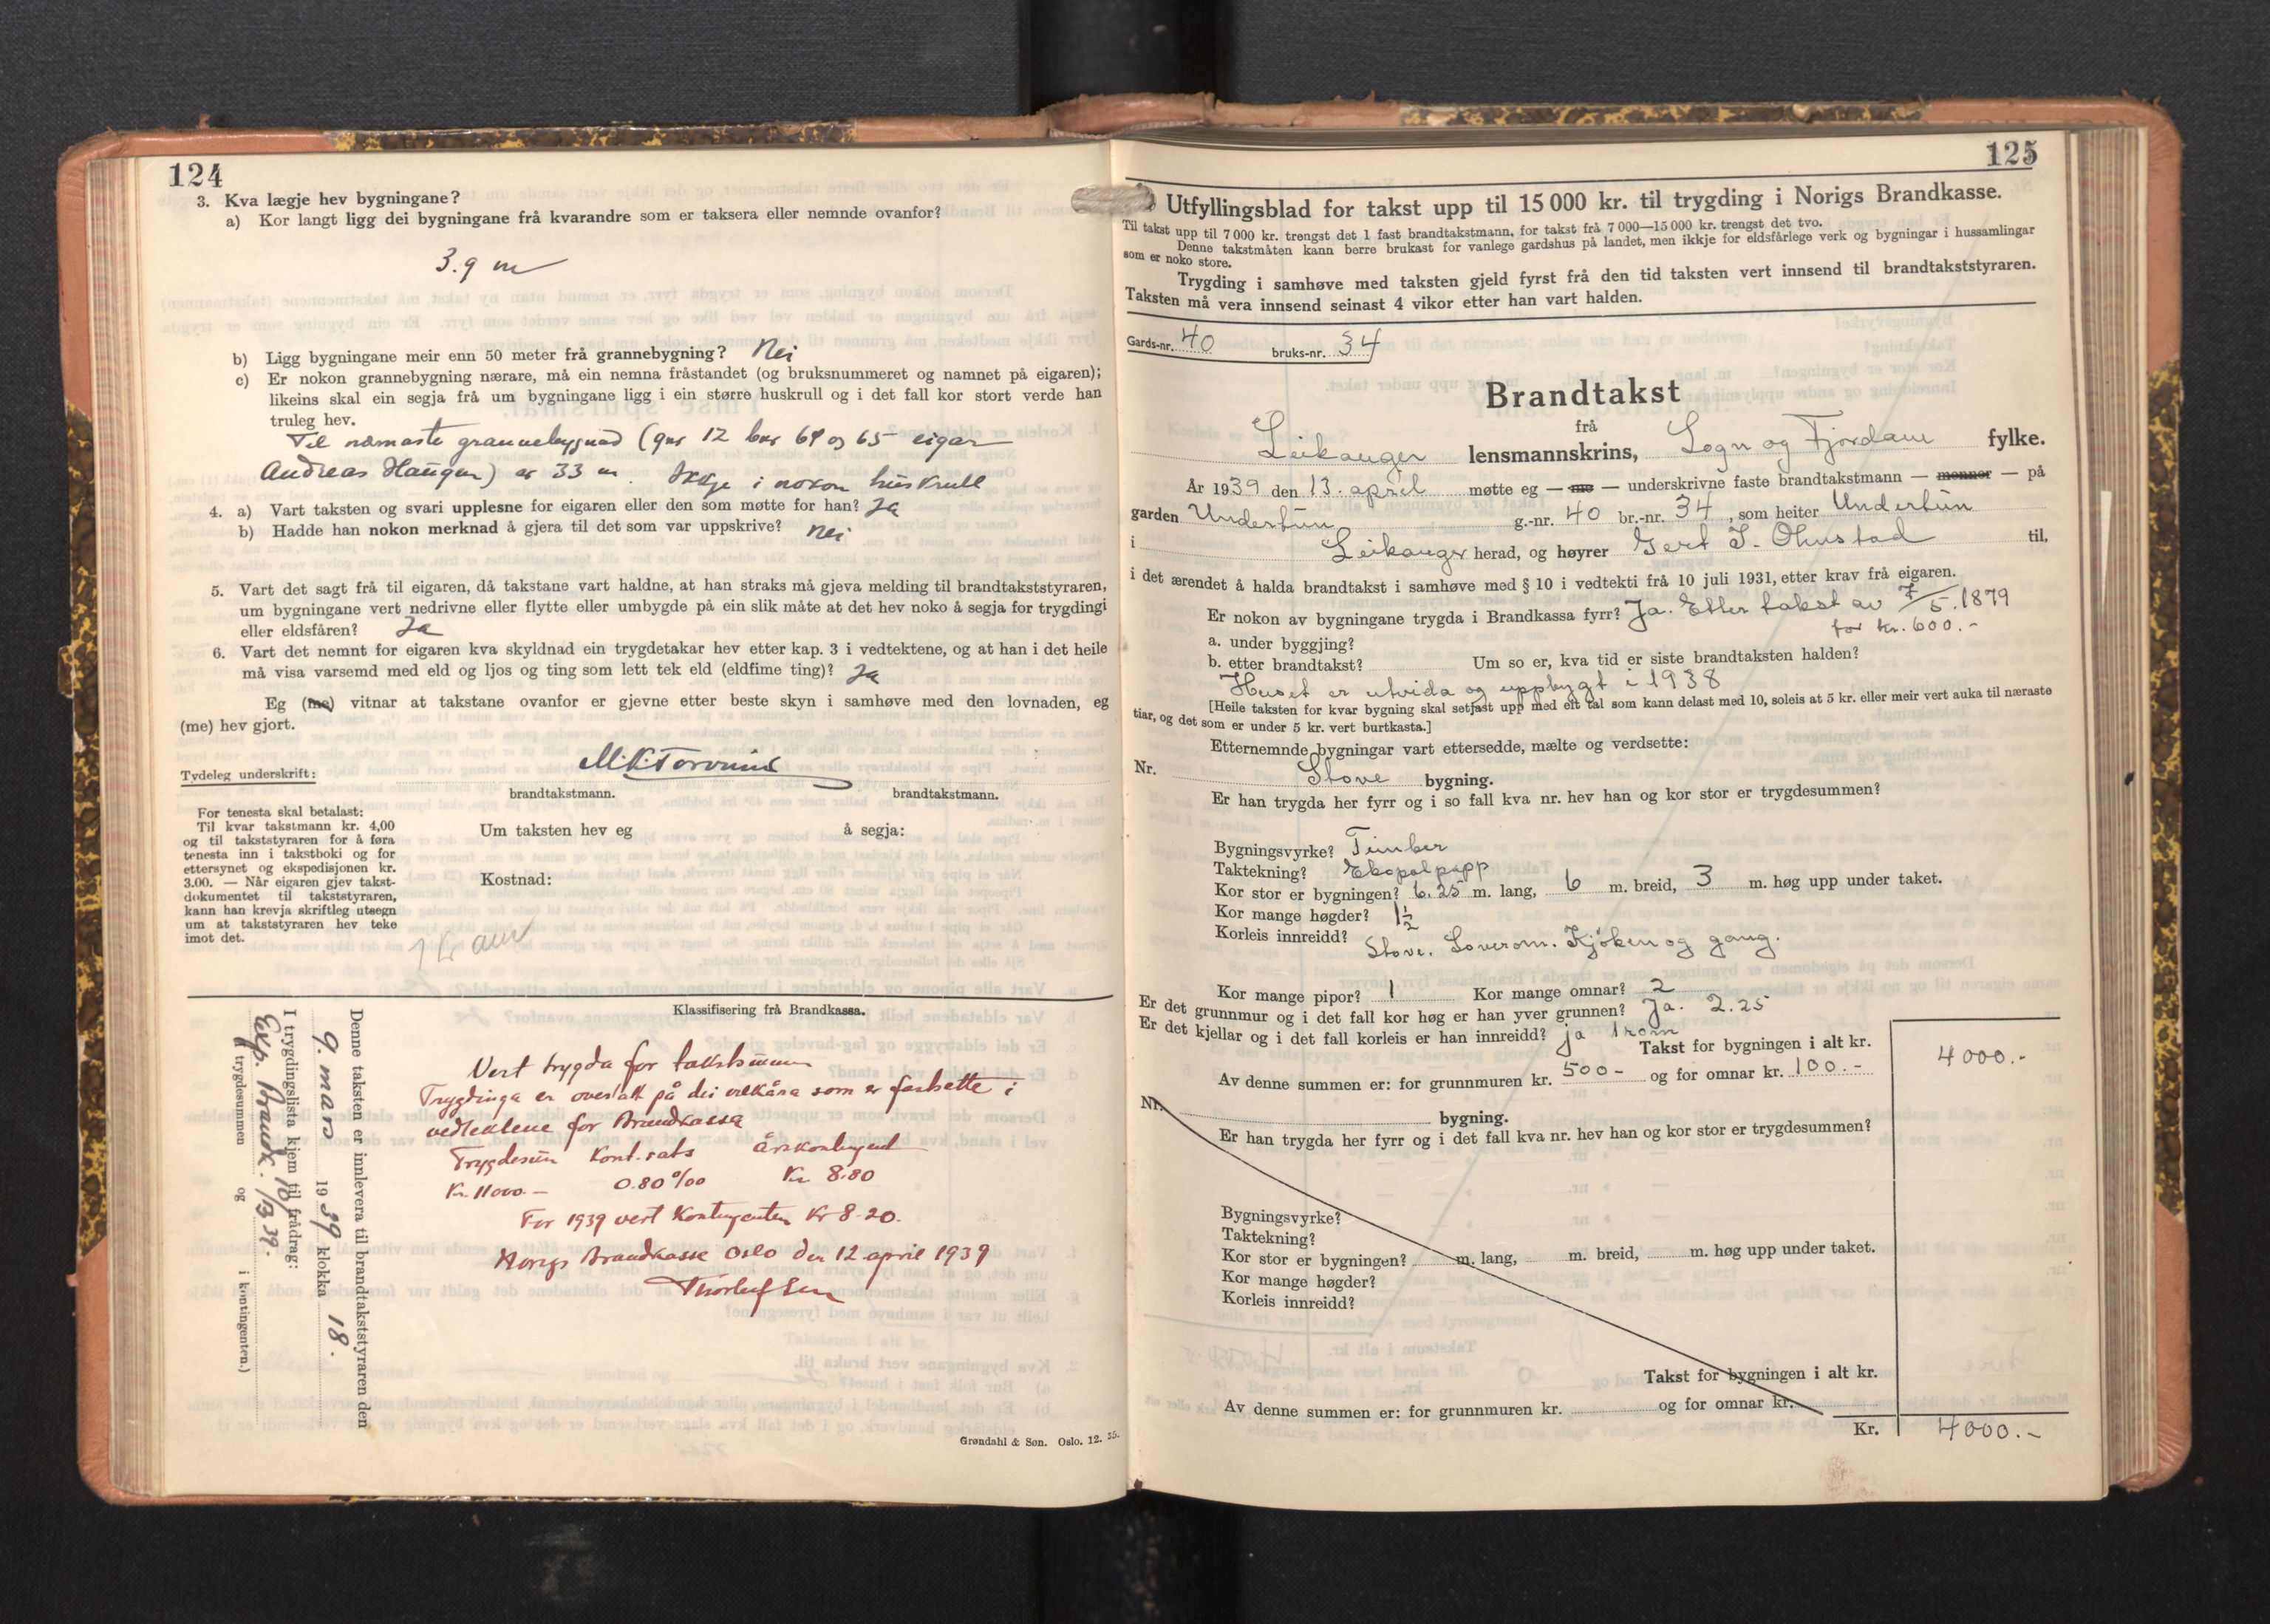 124
3. Kva lægje hev bygningane?
a) Kor langt ligg dei bygningane frå kvarandre som er taksera eller nemnde ovanfor?
3.9 m
b) Ligg bygningane meir enn 50 meter frå grannebygning? Nei
c) Er nokon grannebygning nærare, må ein nemna fråstandet (og bruksnummeret og namnet på eigaren);
likeins skal ein segja frå um bygningane ligg i ein større huskrull og i det fall kor stort verde han
truleg hev.
Til næmaste grannebygnad (gnr 12 bnr 64 og 65 eigar
Andreas Haugen) er 33 m. Ikkje i nokon huskrull
4. a) Vart taksten og svari upplesne for eigaren eller den som møtte for han? Ja
b) Hadde han nokon merknad å gjera til det som var uppskrive? Nei
5. Vart det sagt frå til eigaren, då takstane vart haldne, at han straks må gjeva melding til brandtakststyraren,
um bygningane vert nedrivne eller flytte eller umbygde på ein slik måte at det hev noko å segja for trygdingi
eller eldsfåren? Ja
6. Vart det nemnt for eigaren kva skyldnad ein trygdetakar hev etter kap. 3 i vedtektene, og at han i det heile
må visa varsemd med eld og ljos og ting som lett tek eld (eldfime ting)? Ja
Eg (me) vitnar at takstane ovanfor er gjevne etter beste skyn i samhøve med den lovnaden, eg
(me) hev gjort.
Tydeleg underskrift: M.K. Torvund
brandtakstmann. brandtakstmann.
For tenesta skal betalast:
Til kvar takstmann kr. 4,00
og til takststyraren for å føra
tenesta inn i takstboki og for
ettersynet og ekspedisjonen kr.
3.00. — Når eigaren gjev takst-
dokumentet til takststyraren,
kann han krevja skriftleg utsegn
um at takststyraren hev teke
imot det.
Um taksten hev eg å segja:
Kostnad:
Klassifisering frå Brandkassa.
Vert trygda for takstsummen
Trygdinga er overtatt på dei vilkåra som er fastsette i
vedtektene for Brandkassa
Trygdesum Kont.sats Årskontingent
Kr. 11000.- 0.80 ‰ Kr 8.80
For 1939 vert kontingenten Kr 8.20.
Norigs Brandkasse Oslo den 12 april 1939
Denne taksten er innlevera til brandtakststyraren den
9. mars 1939 klokka 18.
I trygdingslista kjem til frådrag:
Exp. Brandk. 10/3 39.
(i trygdesummen og i kontingenten.)
Grøndahl & Søn. Oslo. 12. 35.
125
Utfyllingsblad for takst upp til 15 000 kr. til trygding i Norigs Brandkasse.
Til takst upp til 7 000 kr. trengst det 1 fast brandtakstmann, for takst frå 7 000—15 000 kr. trengst det tvo.
Denne takstmåten kann berre brukast for vanlege gardshus på landet, men ikkje for eldsfårlege verk og bygningar i hussamlingar
som er noko store.
Trygding i samhøve med taksten gjeld fyrst frå den tid taksten vert innsend til brandtakststyraren.
Taksten må vera innsend seinast 4 vikor etter han vart halden.
Gards-nr. 40 bruks-nr. 34
Brandtakst
frå
Leikanger lensmannskrins, Sogn og Fjordane fylke.
År 1939 den 13. april møtte eg — me — underskrivne faste brandtakstmann — menner — på
garden Undertun g.-nr. 40 br.-nr. 34, som heiter Undertun
i Leikanger herad, og høyrer Gert J. Ohnstad til,
i det ærendet å halda brandtakst i samhøve med § 10 i vedtekti frå 10 juli 1931, etter krav frå eigaren.
Er nokon av bygningane trygda i Brandkassa fyrr? Ja. Etter takst av 7/5.1879
for kr. 600.-
a. under byggjing?
b. etter brandtakst? Um so er, kva tid er siste brandtaksten halden?
Huset er utvida og uppbygt i 1938
[Heile taksten for kvar bygning skal setjast upp med eit tal som kann delast med 10, soleis at 5 kr. eller meir vert auka til næraste
tiar, og det som er under 5 kr. vert burtkasta.]
Etternemnde bygningar vart ettersedde, mælte og verdsette:
Nr. Stove bygning.
Er han trygda her fyrr og i so fall kva nr. hev han og kor stor er trygdesummen?
Bygningsvyrke? Timber
Taktekning? Ekopalpapp
Kor stor er bygningen? 6.25 m. lang, 6 m. breid, 3 m. høg upp under taket.
Kor mange høgder? 1½
Korleis innreidd? Stove, Soverom. Kjøken og gang.
Kor mange pipor? 1 Kor mange omnar? 2
Er det grunnmur og i det fall kor høg er han yver grunnen? Ja. 2.25
Er det kjellar og i det fall korleis er han innreidd? ja 1 rom
Takst for bygningen i alt kr. 4000.-
Av denne summen er: for grunnmuren kr. 500- og for omnar kr. 100.-
Nr. bygning.
Er han trygda her fyrr og i det fall kva nr. hev han og kor stor er trygdesummen?
Bygningsvyrke?
Taktekning?
Kor stor er bygningen? m. lang, m. breid, m. høg upp under taket.
Kor mange høgder?
Korleis innreidd?
Takst for bygningen i alt kr.
Av denne summen er: for grunnmuren kr. og for omnar kr.
Kr. 4000.-